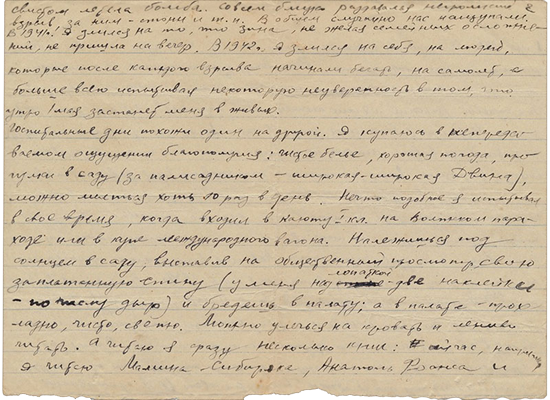 свистом летела бомба. Совсем близко раздавался
взрыв, за ним – стоны и т.п. В общем смутило нас
В 1941г. я злился на то, что Зина, не желая семейных осложне-
ний, не пришла на вечер. В 1942г. я злился на себя, на людей,
которые после каждого взрыва начинали бегать, на самолёт, и
больше всего испытывал некоторую неуверенность в том, что
утро 1 мая застанет меня в живых.
Госпитальные дни похожи один на другой. Я купаюсь в непереда-
ваемом ощущении благополучия: чистое бельё, хорошая погода, про-
гулки в саду (за палисадником – широкая-широкая Двина),
можно мыться хоть 10 раз в день. Нечто подобное я испытывал
в своё время, когда входил в каюту I кл. на Волжском паро-
ходе или в купе международного вагона. Належишься под
солнцем в саду, выставив на общественный просмотр свою
заплатанную спину (у меня над лопаткой две наклейки
– по числу дыр) и бредёшь в палату; а в палате – прох-
ладно, чисто, светло. Можно улечься на кровать и лениво
читать. А читаю я сразу несколько книг: сейчас, например,
я читаю Мамина-Сибиряка, Анатоля Франса и